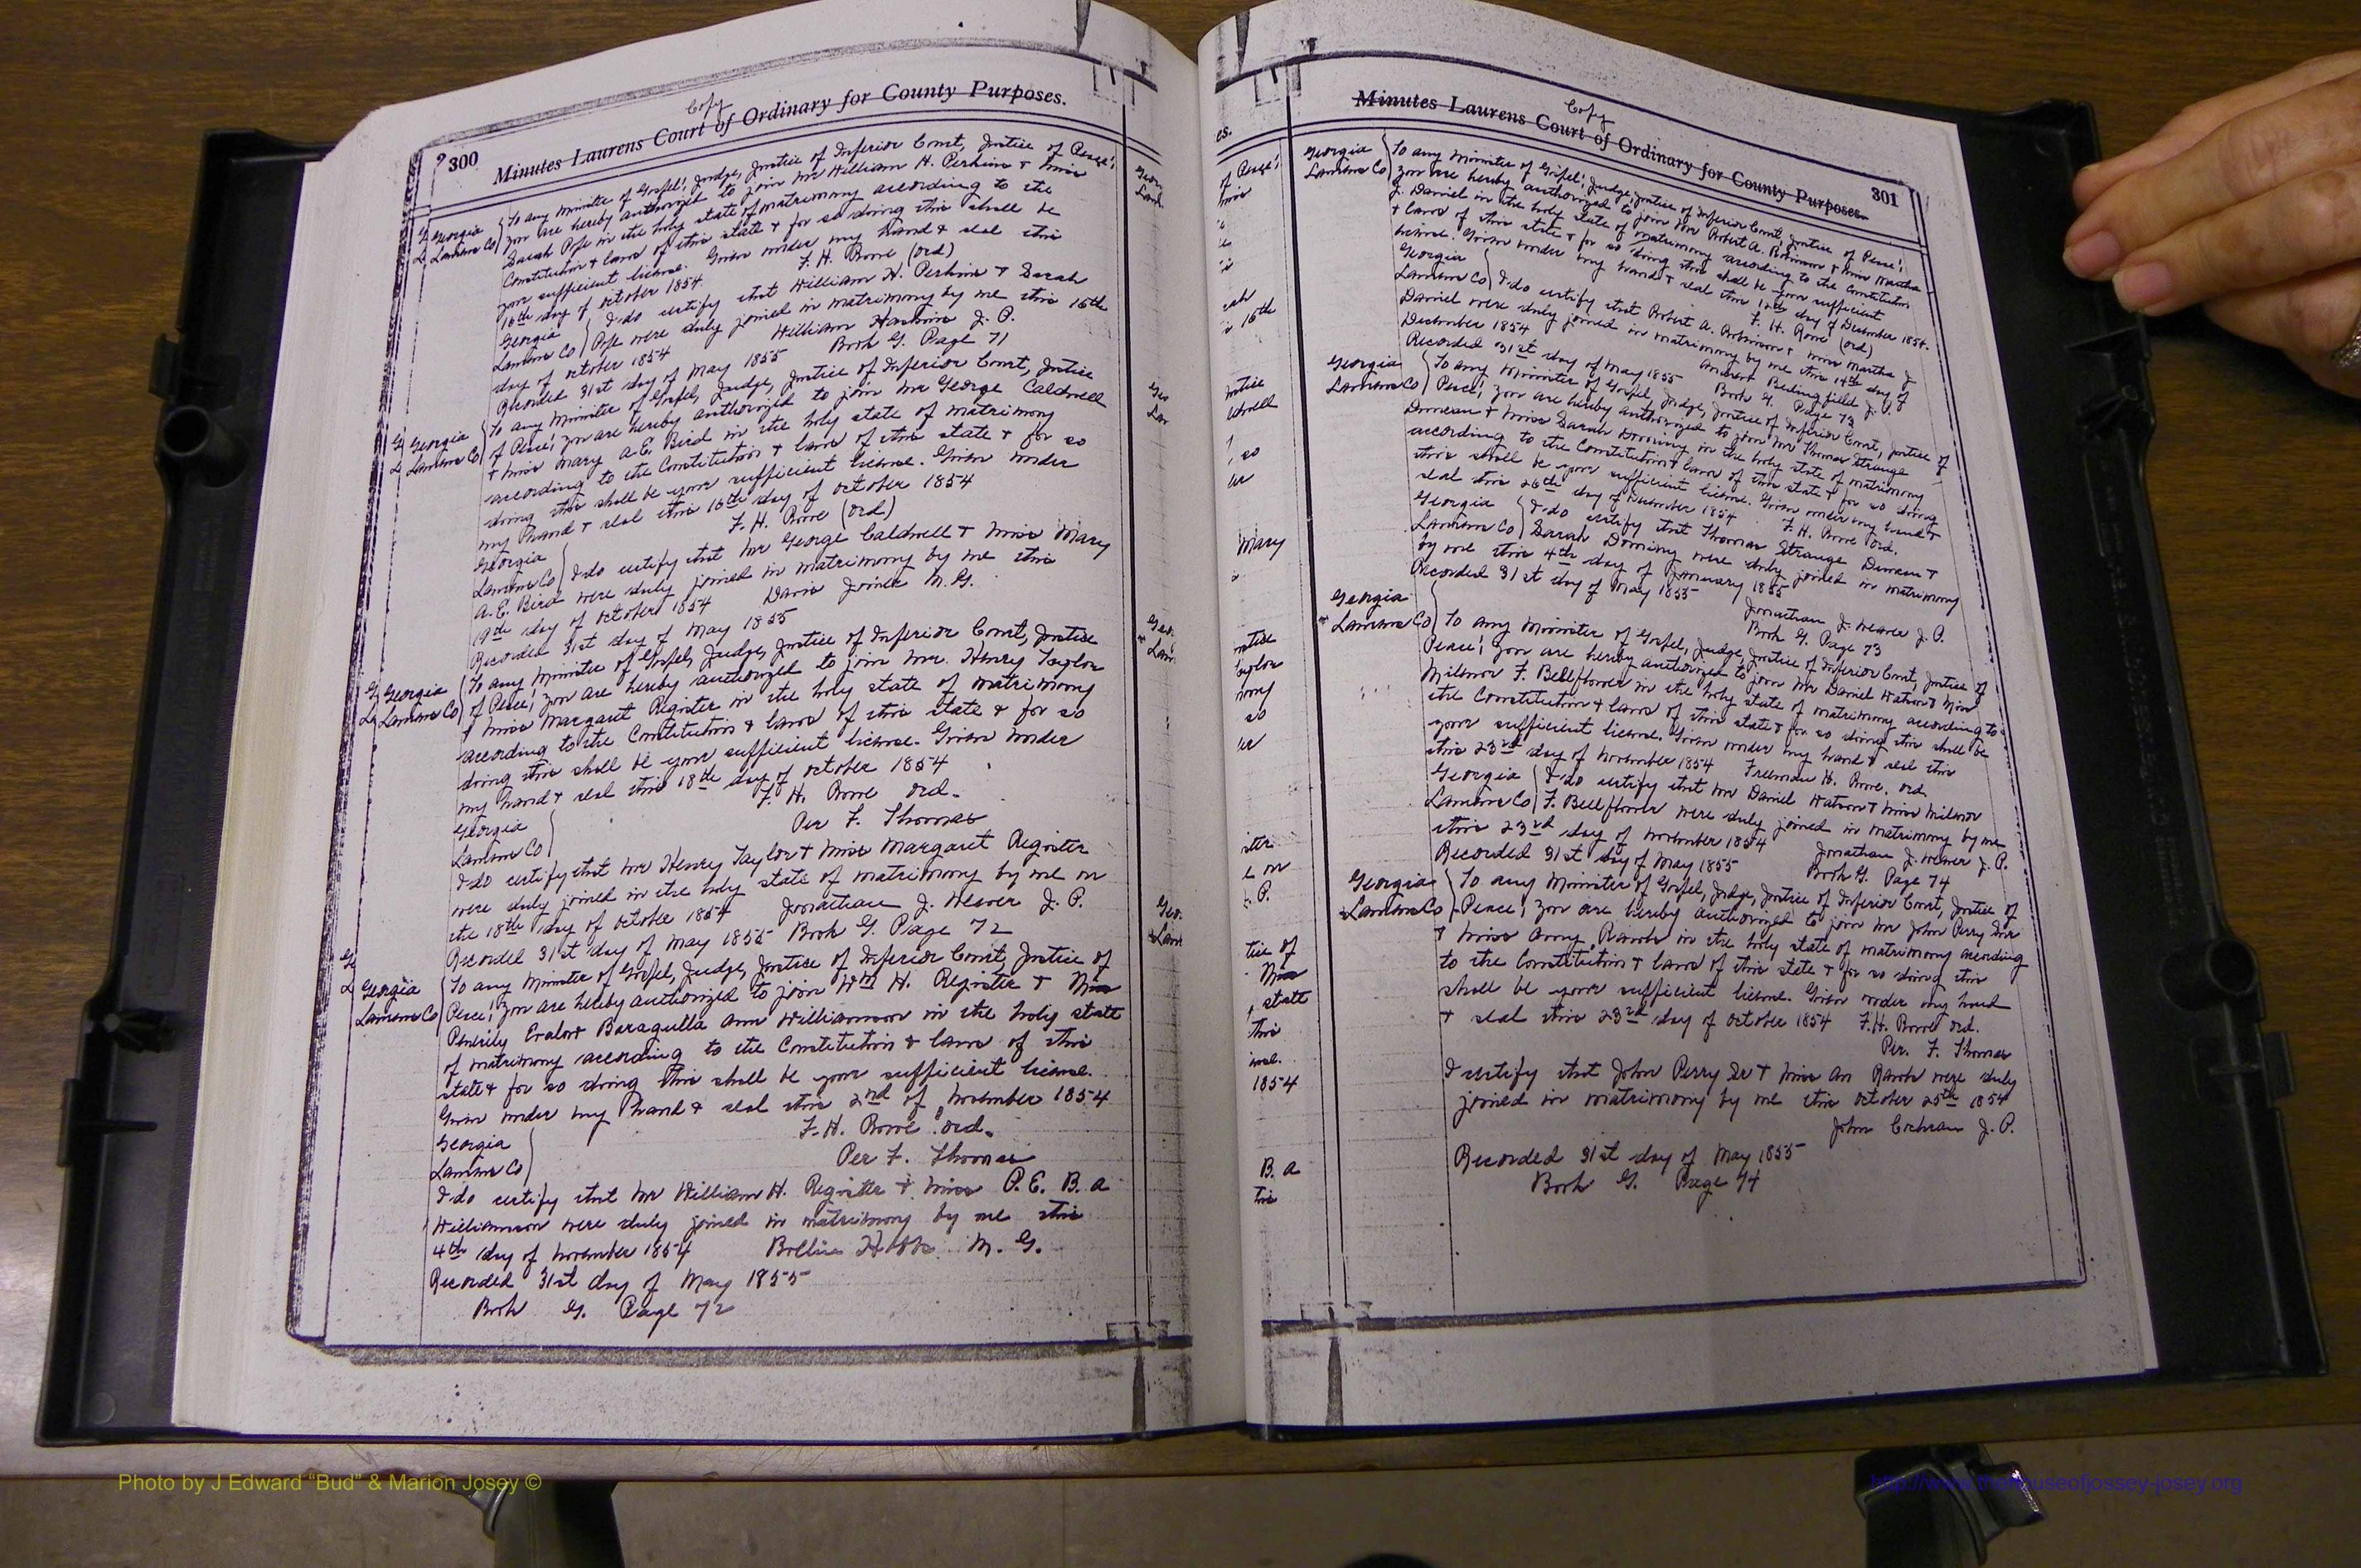 Copy
300 Minutes Laurens Court of Ordinary for County Purposes.
Georgia
Laurens Co
To any Minister of Gospel, Judge, Justice of Inferior Court, Justice of Peace;
you are hereby authorized to join Mr William H. Perkins & Miss
Sarah Pope in the holy state of matrimony according to the
Constitution & laws of this state & for so doing this shall be
your sufficient license. Given under my hand & seal this
16th day of October 1854. F. H. Rowe (Ord)
Georgia
Laurens Co
I do certify that William H. Perkins & Sarah
Pope were duly joined in matrimony by me this 16th
day of October 1854 William J. P.
Recorded 31st day of May 1855 Book G. Page 71
Georgia
Laurens Co
To any Minister of Gospel, Judge, Justice of Inferior Court, Justice
of Peace; you are hereby authorized to join Mr George Caldwell
& Miss Mary A.E. Bird in the holy state of matrimony
according to the Constitution & laws of this state & for so
doing this shall be your sufficient license. Given under
my hand & seal this 16th day of October 1854
F. H. Rowe (Ord)
Georgia
Laurens Co
I do certify that Mr George Caldwell & Miss Mary
A.E. Bird were duly joined in matrimony by me this
19th day of October 1854 Davis Joiner M. G.
Recorded 31st day of May 1855
Georgia
Laurens Co
To any Minister of Gospel, Judge, Justice of Inferior Court, Justice
of Peace; you are hereby authorized to join Mr. Henry Taylor
& Miss Margaret Register in the holy state of matrimony
according to the Constitution & laws of this state & for so
doing this shall be your sufficient license. Given under
my hand & seal this 18th day of October 1854
F. H. Rowe Ord.
Per F. Thomas
Georgia
Laurens Co
I do certify that Mr Henry Taylor & Miss Margaret Register
were duly joined in the holy state of matrimony by me on
the 18th day of October 1854 Jonathan J. Weaver J. P.
Recorded 31st day of May 1855 Book G. Page 72
Georgia
Laurens Co
To any Minister of Gospel, Judge, Justice of Inferior Court, Justice of
Peace; you are hereby authorized to join Wm H. Register & Miss
Baragulla Ann Williamson in the holy state
of matrimony according to the Constitution & laws of this
state & for so doing this shall be your sufficient license.
Given under my hand & seal this 2nd of November 1854
F. H. Rowe Ord.
Per F. Thomas
Georgia
Laurens Co
I do certify that Mr William H. Register & Miss P. E. B. a
Williamson were duly joined in matrimony by me this
4th day of November 1854 Hobbs M. G.
Recorded 31st day of May 1855
Book G. Page 72
Copy
Minutes Laurens Court of Ordinary for County Purposes. 301
Georgia
Laurens Co
To any Minister of Gospel, Judge, Justice of Inferior Court, Justice of Peace;
you are hereby authorized to join Mr Robert A. Robinson & Miss Martha
J. Daniel in the holy state of matrimony according to the Constitution
& laws of this state & for so doing this shall be your sufficient
license. Given under my hand & seal this 12th day of December 1854.
F. H. Rowe (Ord)
Georgia
Laurens Co
I do certify that Robert A. Robinson & Miss Martha J
Daniel were duly joined in matrimony by me this 14th day of
December 1854 Bedingfield J. P.
Recorded 31st day of May 1855 Book G. Page 73
Georgia
Laurens Co
To any Minister of Gospel, Judge, Justice of Inferior Court, Justice of
Peace; you are hereby authorized to join Mr Thomas Strange
Duncan & Miss Sarah Dominy in the holy state of matrimony
according to the Constitution & laws of this state & for so doing
this shall be your sufficient license. Given under my hand &
seal this 26th day of December 1854 F. H. Rowe Ord.
Georgia
Laurens Co
I do certify that Thomas Strange Duncan &
Sarah Dominy were duly joined in matrimony
by me this 4th day of January 1855
Jonathan J. Weaver J. P.
Recorded 31st day of May 1855 Book G. Page 73
Georgia
Laurens Co
To any Minister of Gospel, Judge, Justice of Inferior Court, Justice of
Peace; you are hereby authorized to join Mr Daniel Watson & Miss
F. Bellflower in the holy state of matrimony according to
the Constitution & laws of this state & for so doing this shall be
your sufficient license. Given under my hand & seal this
this 23rd day of November 1854 Freeman H. Rowe. Ord.
Georgia
Laurens Co
I do certify that Mr Daniel Watson & Miss
F. Bellflower were duly joined in matrimony by me
this 23rd day of November 1854 Jonathan J. Weaver J. P.
Recorded 31st day of May 1855 Book G. Page 74
Georgia
Laurens Co
To any Minister of Gospel, Judge, Justice of Inferior Court, Justice of
Peace; you are hereby authorized to join Mr John Perry Snr
& Miss Amy in the holy state of matrimony according
to the Constitution & laws of this state & for so doing this
shall be your sufficient license. Given under my hand
& seal this 23rd day of October 1854 F.H. Rowe Ord.
Per. F. Thomas
I certify that John Perry Sr & Miss An were duly
joined in matrimony by me this October 25th 1854
John Cochran J. P.
Recorded 31st day of May 1855
Book G. Page 74
Photo by J Edward "Bud" & Marion Josey ©
http://www.thehouseofjossey-josey.org